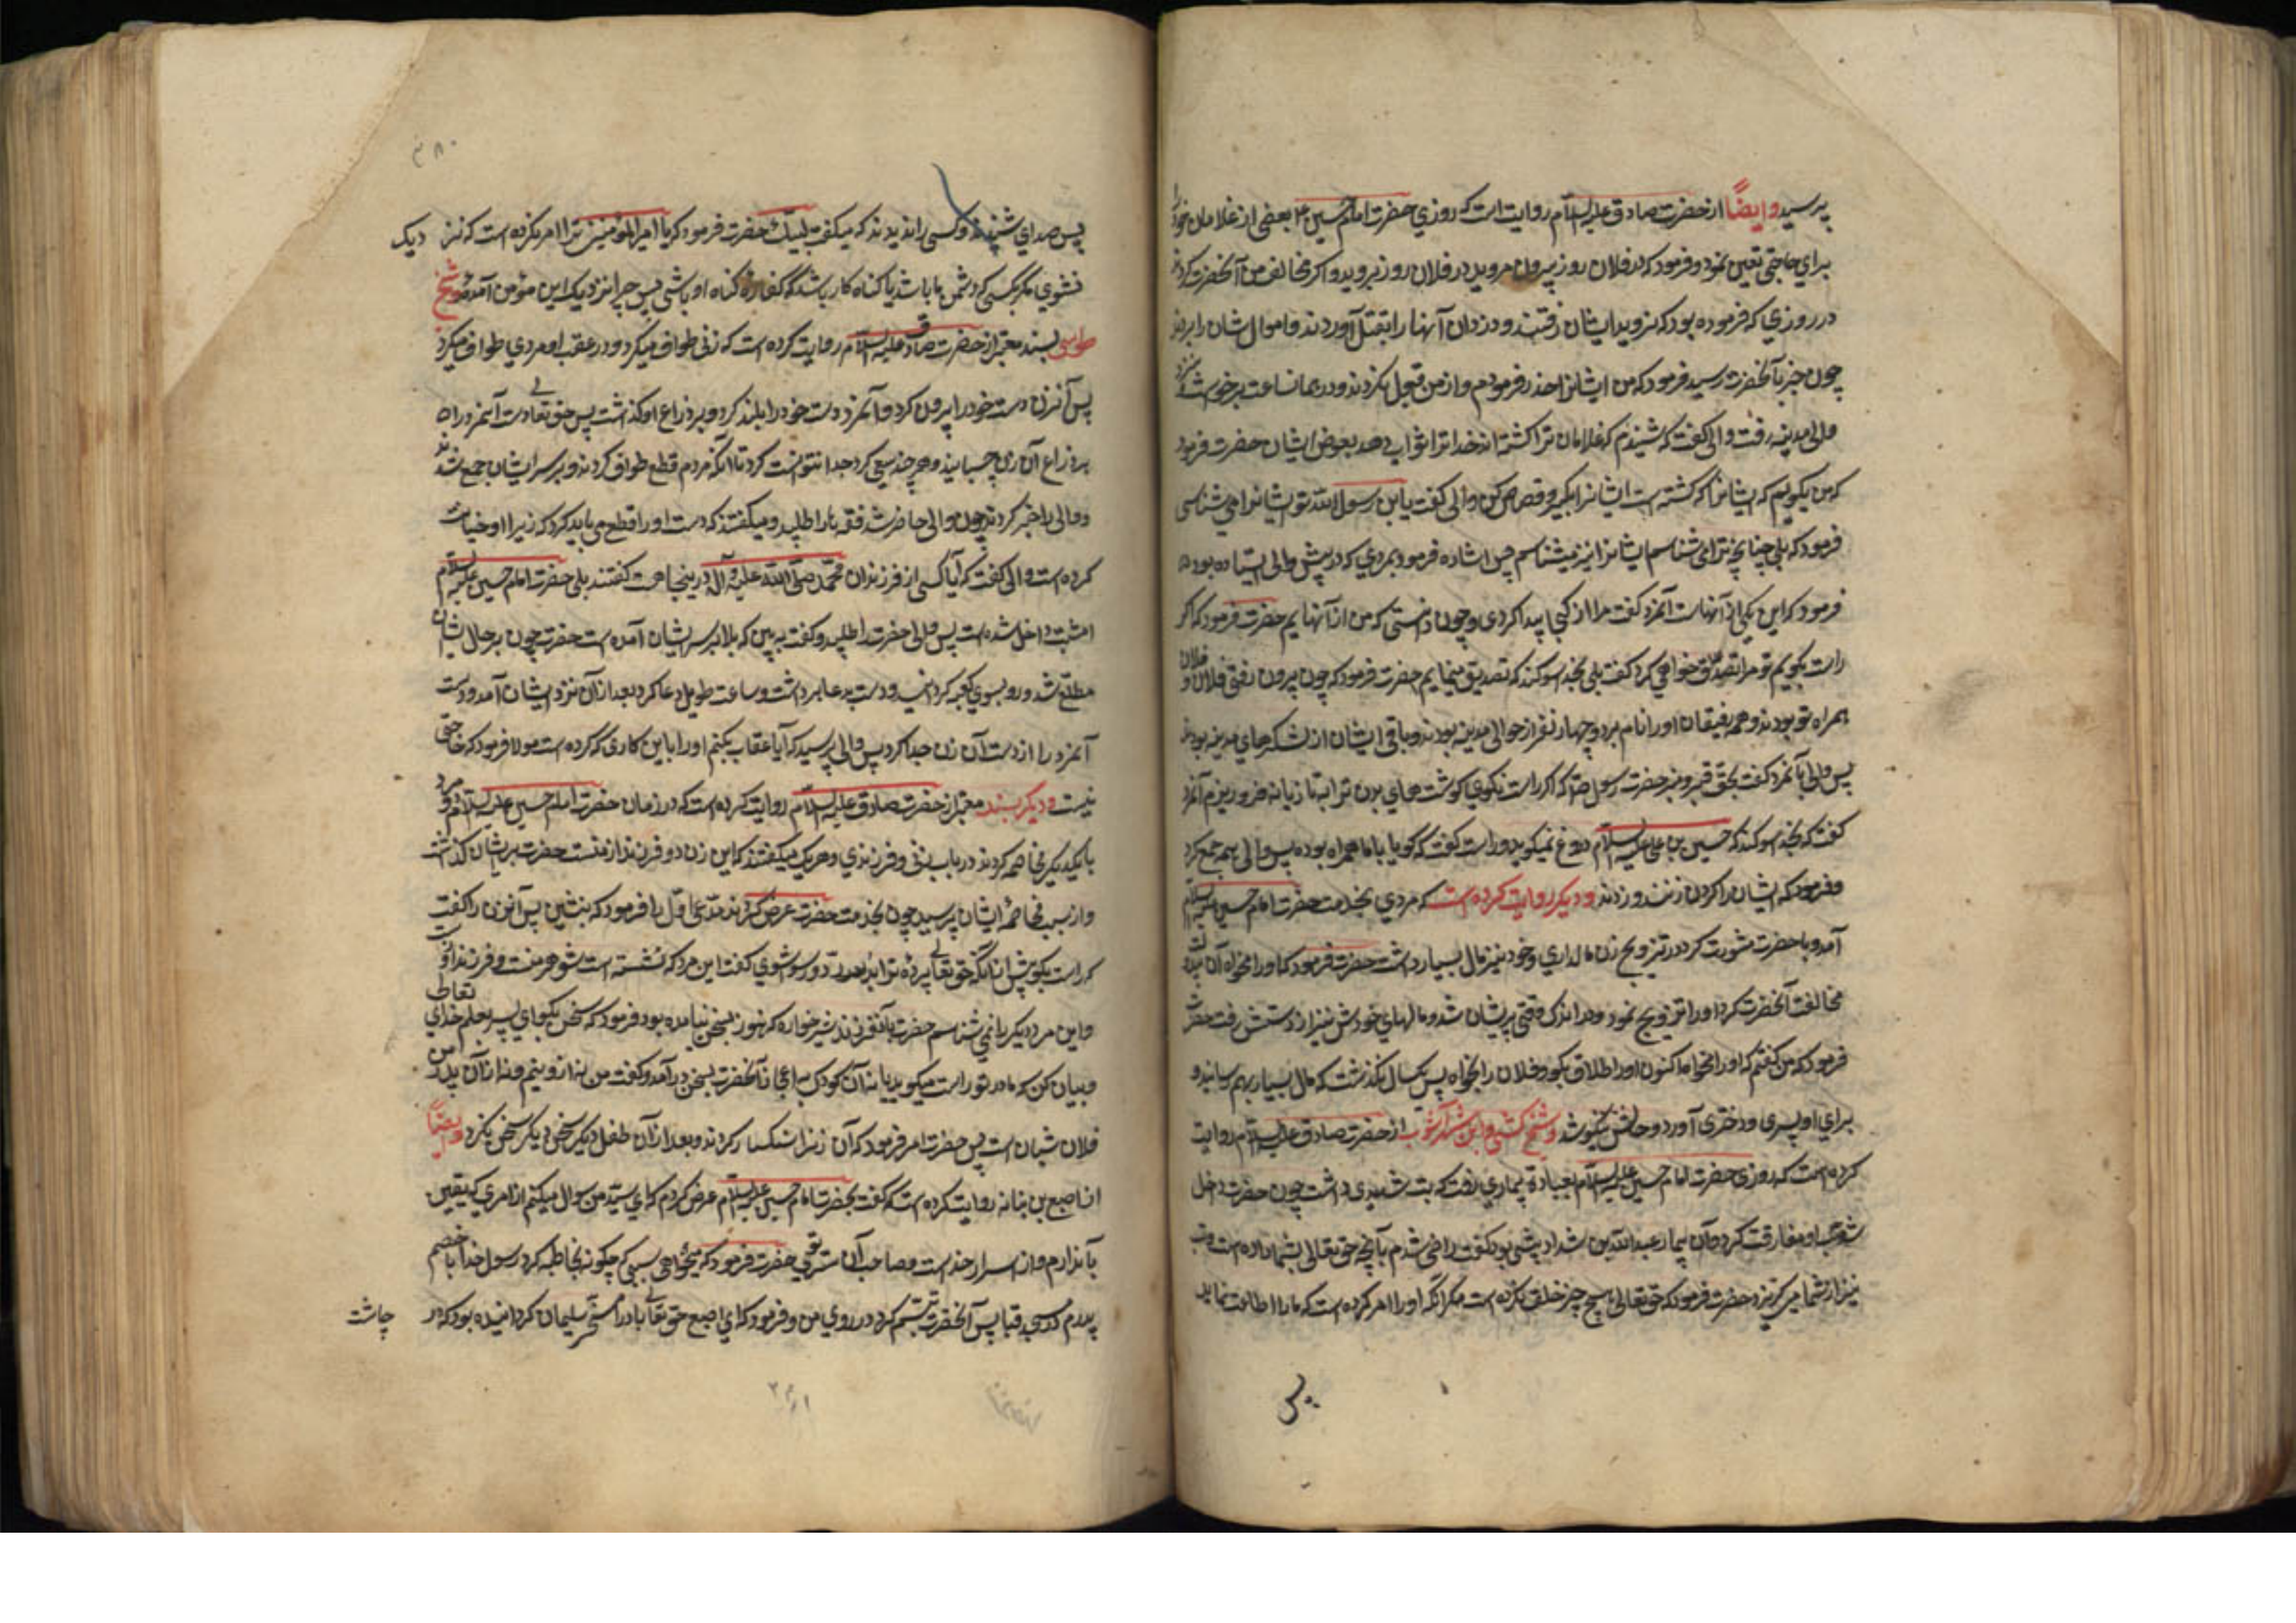 پرسید وایضاً از حضرت صادق علیه السلام روایت است که روزی حضرت امام حسین ع بعضی از غلامان خود را
برای حاجتی تعین نمود و فرمود که در فلان روز بیرون مروید در فلان روز بروید و اکر مخالفت من آنحضرت کردند
در روزی که فرموده بود که نروید ایشان رفتند و دزدان آنها را بقتل آوردند و اموال ایشان را بردند
چون خبر بآنحضرت رسید فرمود که من ایشانرا حذر فرمودم و از من قبول نکردند و در همان ساعت برخواست نزد
والی مدینه رفت والی کفت که شنیدم که غلامان ترا کشته اند خدا ترا ثواب دهد بعوض ایشان حضرت فرمود
که من بکویم که ایشانرا که کشته است ایشانرا بکیر و قصاص کن والی کفت یابن رسول الله تو ایشانرا می شناسی
فرمود که بلی چنانچه ترا می شناسم ایشانرا نیز میشناسم پس اشاده فرمود بمردی که در پیش والی ایستاده بود
فرمود که این یکی از آنهاست آنمرد کفت مرا از کجا پیدا کردی و چون دانستی که من از آنهایم حضرت فرمود که اکر
راست بکویم تو مرا تصدیق خواهی کرد کفت بلی بخدا سوکند که تصدیق مینمایم حضرت فرمود که چون بیرون رفتی فلان و فلان
همراه تو بودند و همه رفیقان او را نام برد و چهار نفر از حوالی مدینه بودند و باقی ایشان از لشکرهای مدینه بودند
پس والی بآنمرد کفت بحق قبر و منبر حضرت رسول که اکر راست نکوی کوشت های بدن ترا به تازیانه فرو ریزم آنمرد
کفت که بخدا سوکند که حسین بن علی علیه السلام دروغ نمیکوید و راست کفت که کویا با ما همراه بوده پس والی همه جمع کرد
و فرمود که ایشان را کردن زنند و زدند و دیکر روایت کرده است که مردی بخدمت حضرت امام حسین علیه السلام
آمد و با حضرت مشورت کرد در تزویج زن مالداری و خود نیز مال بسیار داشت حضرت فرمود که او را مخواه آن
مخالفت آنحضرت کرد او را تزویج نمود و در اندک وقتی پریشان شد و مالهای خودش نیز از دستش رفت حضرت
فرمود که من کفتم که او را مخواه اما کنون او را طلاق بکو و فلان را بخواه پس یکسال نکذشت که مال بسیار بهم رسانید و
برای او پسری و دختری آورد و حالش نیکو شد و شیخ کشی و ابن شهرآشوب از حضرت صادق علیه السلام روایت
کرده است که روزی حضرت امام حسین علیه السلام بعیادة بیماری رفت که تب شدیدی داشت چون حضرت داخل
شد تب او مفارقت کرد و آن بیمار عبدالله بن شداد لیثی بود کفت راضی شدم بآنچه حق تعالی بشما داده است و تب
نیز از شما میکریزد حضرت فرمود که حق تعالی هیچ چیز خلق نکرده است مکر آنکه او را امر کرده است که ما را اطاعت نماید
پس
۳۸۰
پس صدای شنیدند و کسی را ندیدند که میکفت لبیک حضرت فرمود که یا امیرالمؤمنین ترا امر نکرده است که نزدیک
نشوی مکر بکسی که دشمن ما باشد یا کناه کار باشد که کفاره کناه او باشی پس چرا نزدیک این مؤمن آمده و شیخ
طوسی بسند معتبر از حضرت صادق علیه السلام روایت کرده است که زنی طواف میکرد و در عقب او مردی طواف میکرد
پس آنزن دست خود را بیرون کرد و آنمرد دست خود را بلند کرد و بر ذراع او کذاشت پس حق تعالی دست آنمرد را
بر ذراع آن زن چسبانید و هر چند سعی کرد جدا نتوانست کرد تا آنکه مردم قطع طواف کردند و بر سر ایشان جمع شدند
و والی را خبر کردند چون والی حاضر شد فقها را طلبید و میکفتند که دست او را قطع می باید کرد که زیرا او خیانت
کرده است والی کفت که آیا کسی از فرزندان محمد صلی الله علیه و آله در اینجا هست کفتند بلی حضرت امام حسین علیه السلام
امشب داخل شده است پس والی حضرت را طلبید و کفت به بین که چه بلا بر سر ایشان آمده است حضرت چون بر حال ایشان
مطلع شد و رو بسوی کعبه کردانید و دست بدعا برداشت و ساعت طویل دعا کرد بعد از آن نزد ایشان آمد و دست
آنمرد را از دست آن زن جدا کرد پس والی پرسید که آیا عقاب بکنم او را باین کاری که کرده است مولا فرمود که حاجتی
نیست و دیکر بسند معتبر از حضرت صادق علیه السلام روایت کرده است که در زمان حضرت امام حسین علیه السلام دو مرد
با یکدیکر مخاصمه کردند در باب زنی و فرزندی و هر یک میکفتند که این زن و فرزند از منست حضرت بر ایشان کذشت
و از سبب مخاصمهٔ ایشان پرسید چون بخدمت حضرت عرض کردند مدعی اول را فرمود که بنشین پس آنزن را کفت
که راست بکو پیش از آنکه حق تعالی پردهٔ ترا بدرد و رسوا شوی کفت این مرد که نشسته است شوهر منست و فرزند از اوست
و این مرد دیکر را نمی شناسم حضرت بآن فرزند شیرخواره که هنوز بسخن نیامده بود فرمود که سخن بکو ای پسر بعلم خدای تعالی
و بیان کن که مادر تو راست میکوید یا نه آن کودک باعجاز آنحضرت بسخن درآمد و کفت من نه از اویم و نه از آن پدر من
فلان شبان است پس حضرت امر فرمود که آن زنرا سنکسار کردند و بعد از آن طفل دیکر سخن نکرد وایضاً
از اصبع بن نباته روایت کرده است که کفت بحضرت امام حسین علیه السلام عرض کردم که ای سید من سوال میکنم از امری که یقین
بآن دارم و از اسرار خداست و صاحب آن سر توی حضرت فرمود که میخواهی ببینی که چکونه مخاطبه کرد رسول خدا با خصم
پدرم در مسجد قبا پس آنحضرت تبسم کرد در روی من و فرمود که ای اصبع حق تعالی باد را مسخر سلیمان کردانیده بود که در
چاشت
۳۸۱